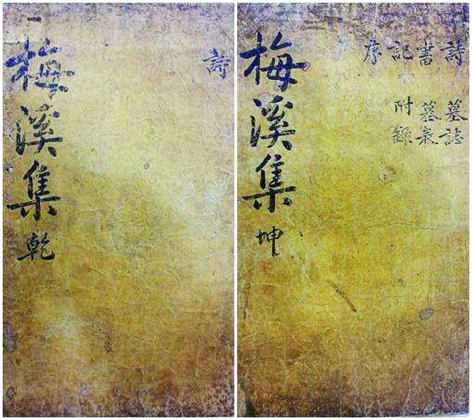 詩
梅溪集 乾
詩 墓誌
書
記 附錄
序
梅溪集 坤